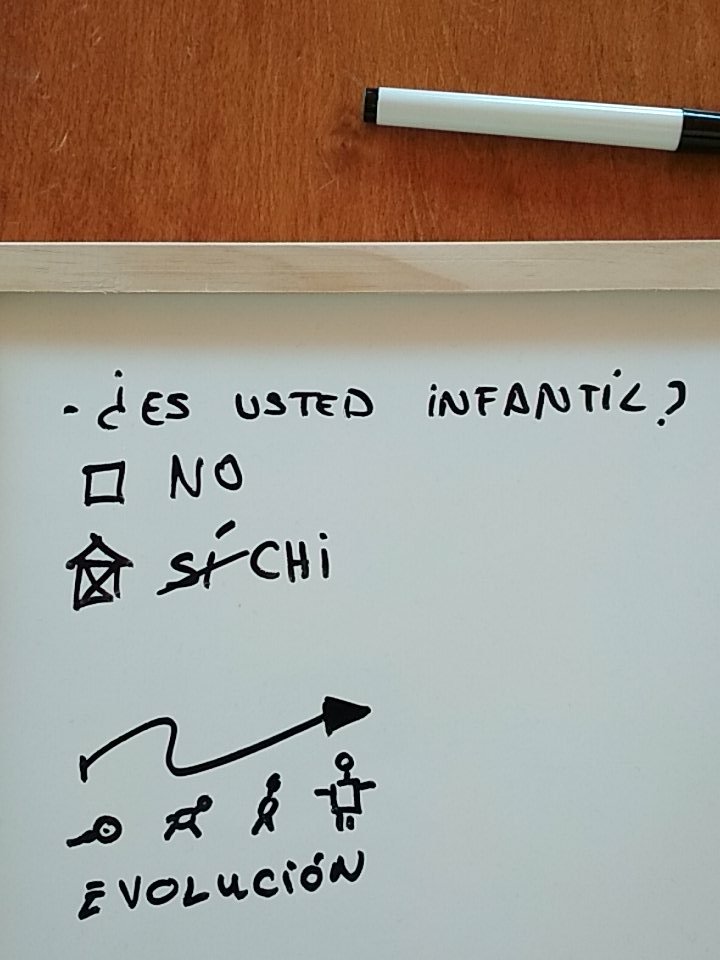 - ¿ES USTED INFANTIL?
NO
SÍ CHI
EVOLUCIÓN